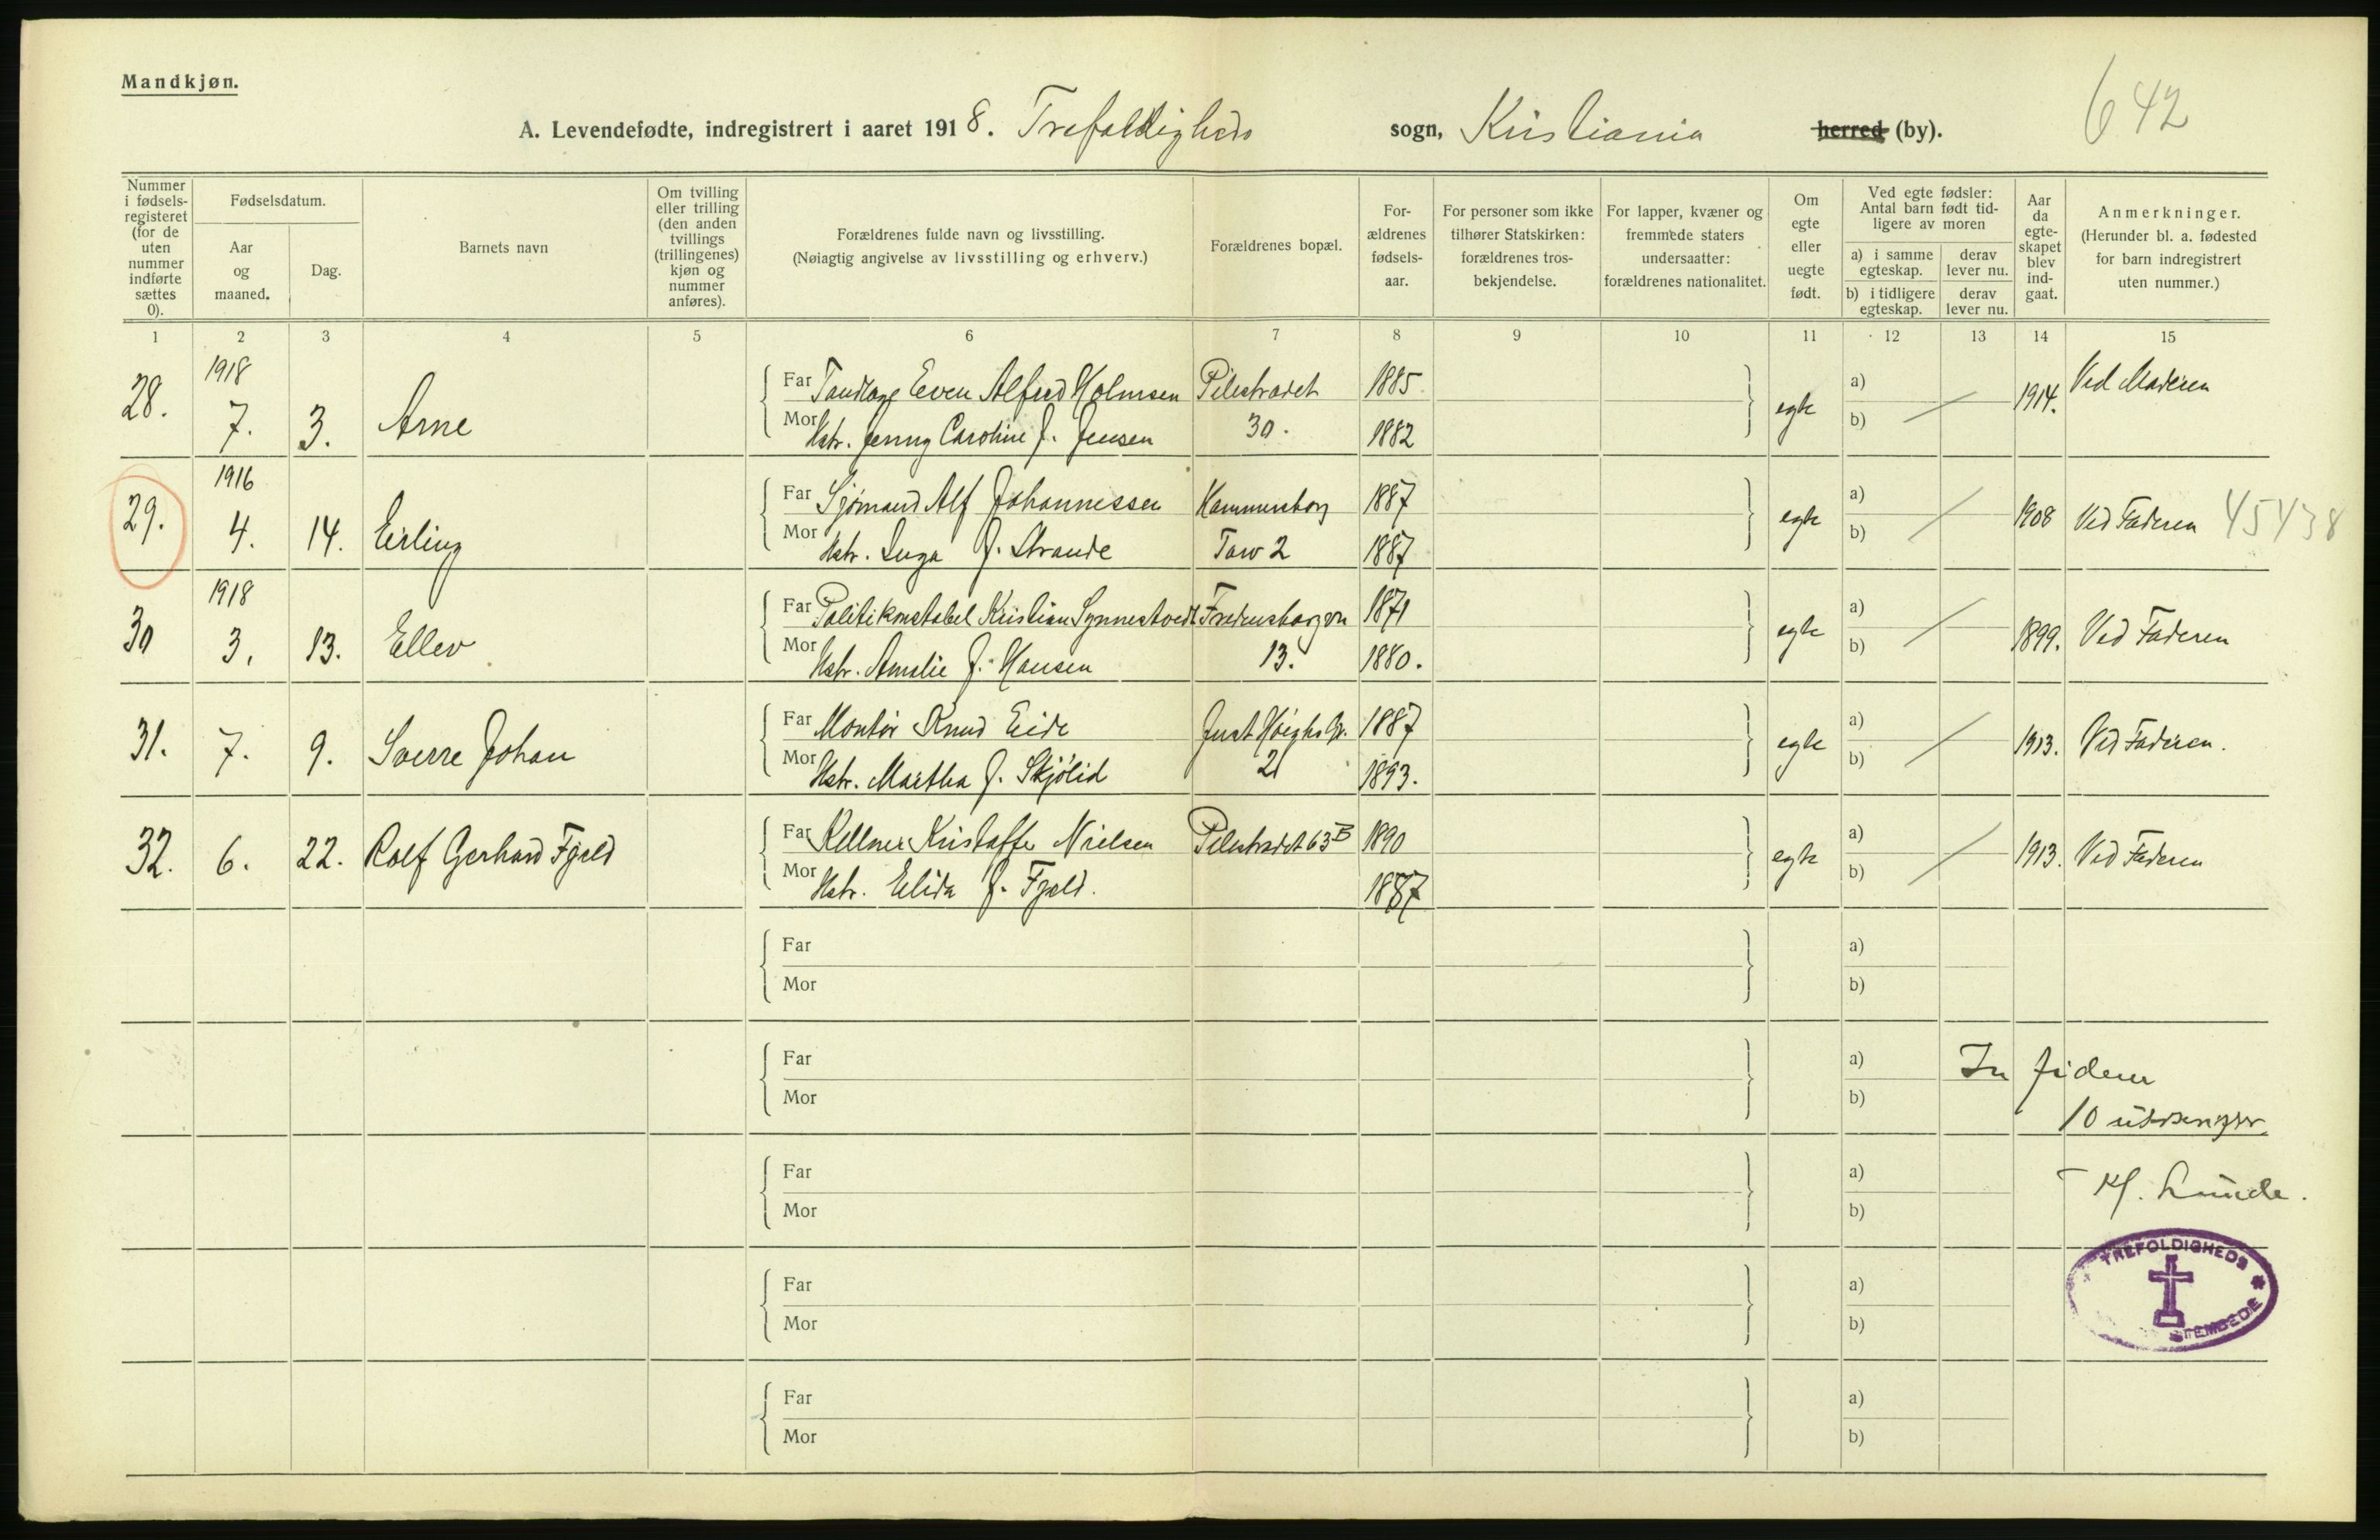 Mandkjøn.
642
A. Levendefødte, indregistrert i aaret 1918. Trefoldigheds sogn, Kristiania herred (by).
Nummer i fødsels-registeret (for de uten nummer indførte sættes 0).
Fødselsdatum.
Aar og maaned.
Dag.
Barnets navn
Om tvilling eller trilling (den anden tvillings (trillingenes) kjøn og nummer anføres).
Forældrenes fulde navn og livsstilling.
(Nøiagtig angivelse av livsstilling og erhverv.)
Forældrenes bopæl.
For-ældrenes fødsels-aar.
For personer som ikke tilhører Statskirken: forældrenes tros-bekjendelse.
For lapper, kvæner og fremmede staters undersaatter: forældrenes nationalitet.
Om egte eller uegte født.
Ved egte fødsler: Antal barn født tid-ligere av moren
a) i samme egteskap.
derav lever nu.
b) i tidligere egteskap.
derav lever nu.
Aar da egte-skapet blev ind-gaat.
Anmerkninger.
(Herunder bl. a. fødested for barn indregistrert uten nummer.)
1 2 3 4 5 6 7 8 9 10 11 12 13 14 15
1918
28. 7. 3. Arne
Far Tandlæge Even Alfred Holmsen Pilestrædet 1885
Mor Hstr. Jenny Caroline f. Jensen 30. 1882
egte a) b) 1914. Ved Moderen
1916
29. 4. 14. Erling
Far Sjømand Alf Johannessen Hammersborg 1887
Mor Hstr. Inga f. Strande Torv 2 1887
egte a) b) 1908 Ved Faderen 45438
1918
30 3. 13. Ellev
Far Politikonstabel Kristian Synnestvedt Fredensborgvn 1871
Mor Hstr. Amalie f. Hansen 13. 1880.
egte a) b) 1899. Ved Faderen
31. 7. 9. Sverre Johan
Far Montør Knud Eide Just Høeghs G. 1887
Mor Hstr. Martha f. Skjølid 21 1893.
egte a) b) 1913. Ved Faderen.
32. 6. 22. Rolf Gerhard Fjeld
Far Kellner Kristoffer Nielsen Pilestrædet 63B 1890
Mor Hstr. Elida f. Fjeld. 1887
egte a) b) 1913. Ved Faderen
Far a)
Mor b)
Far a) In fidem
Mor b) 10
Far a) Lunde.
Mor b)
TREFOLDIGHEDS
Far a)
Mor b)
Far a)
Mor b)